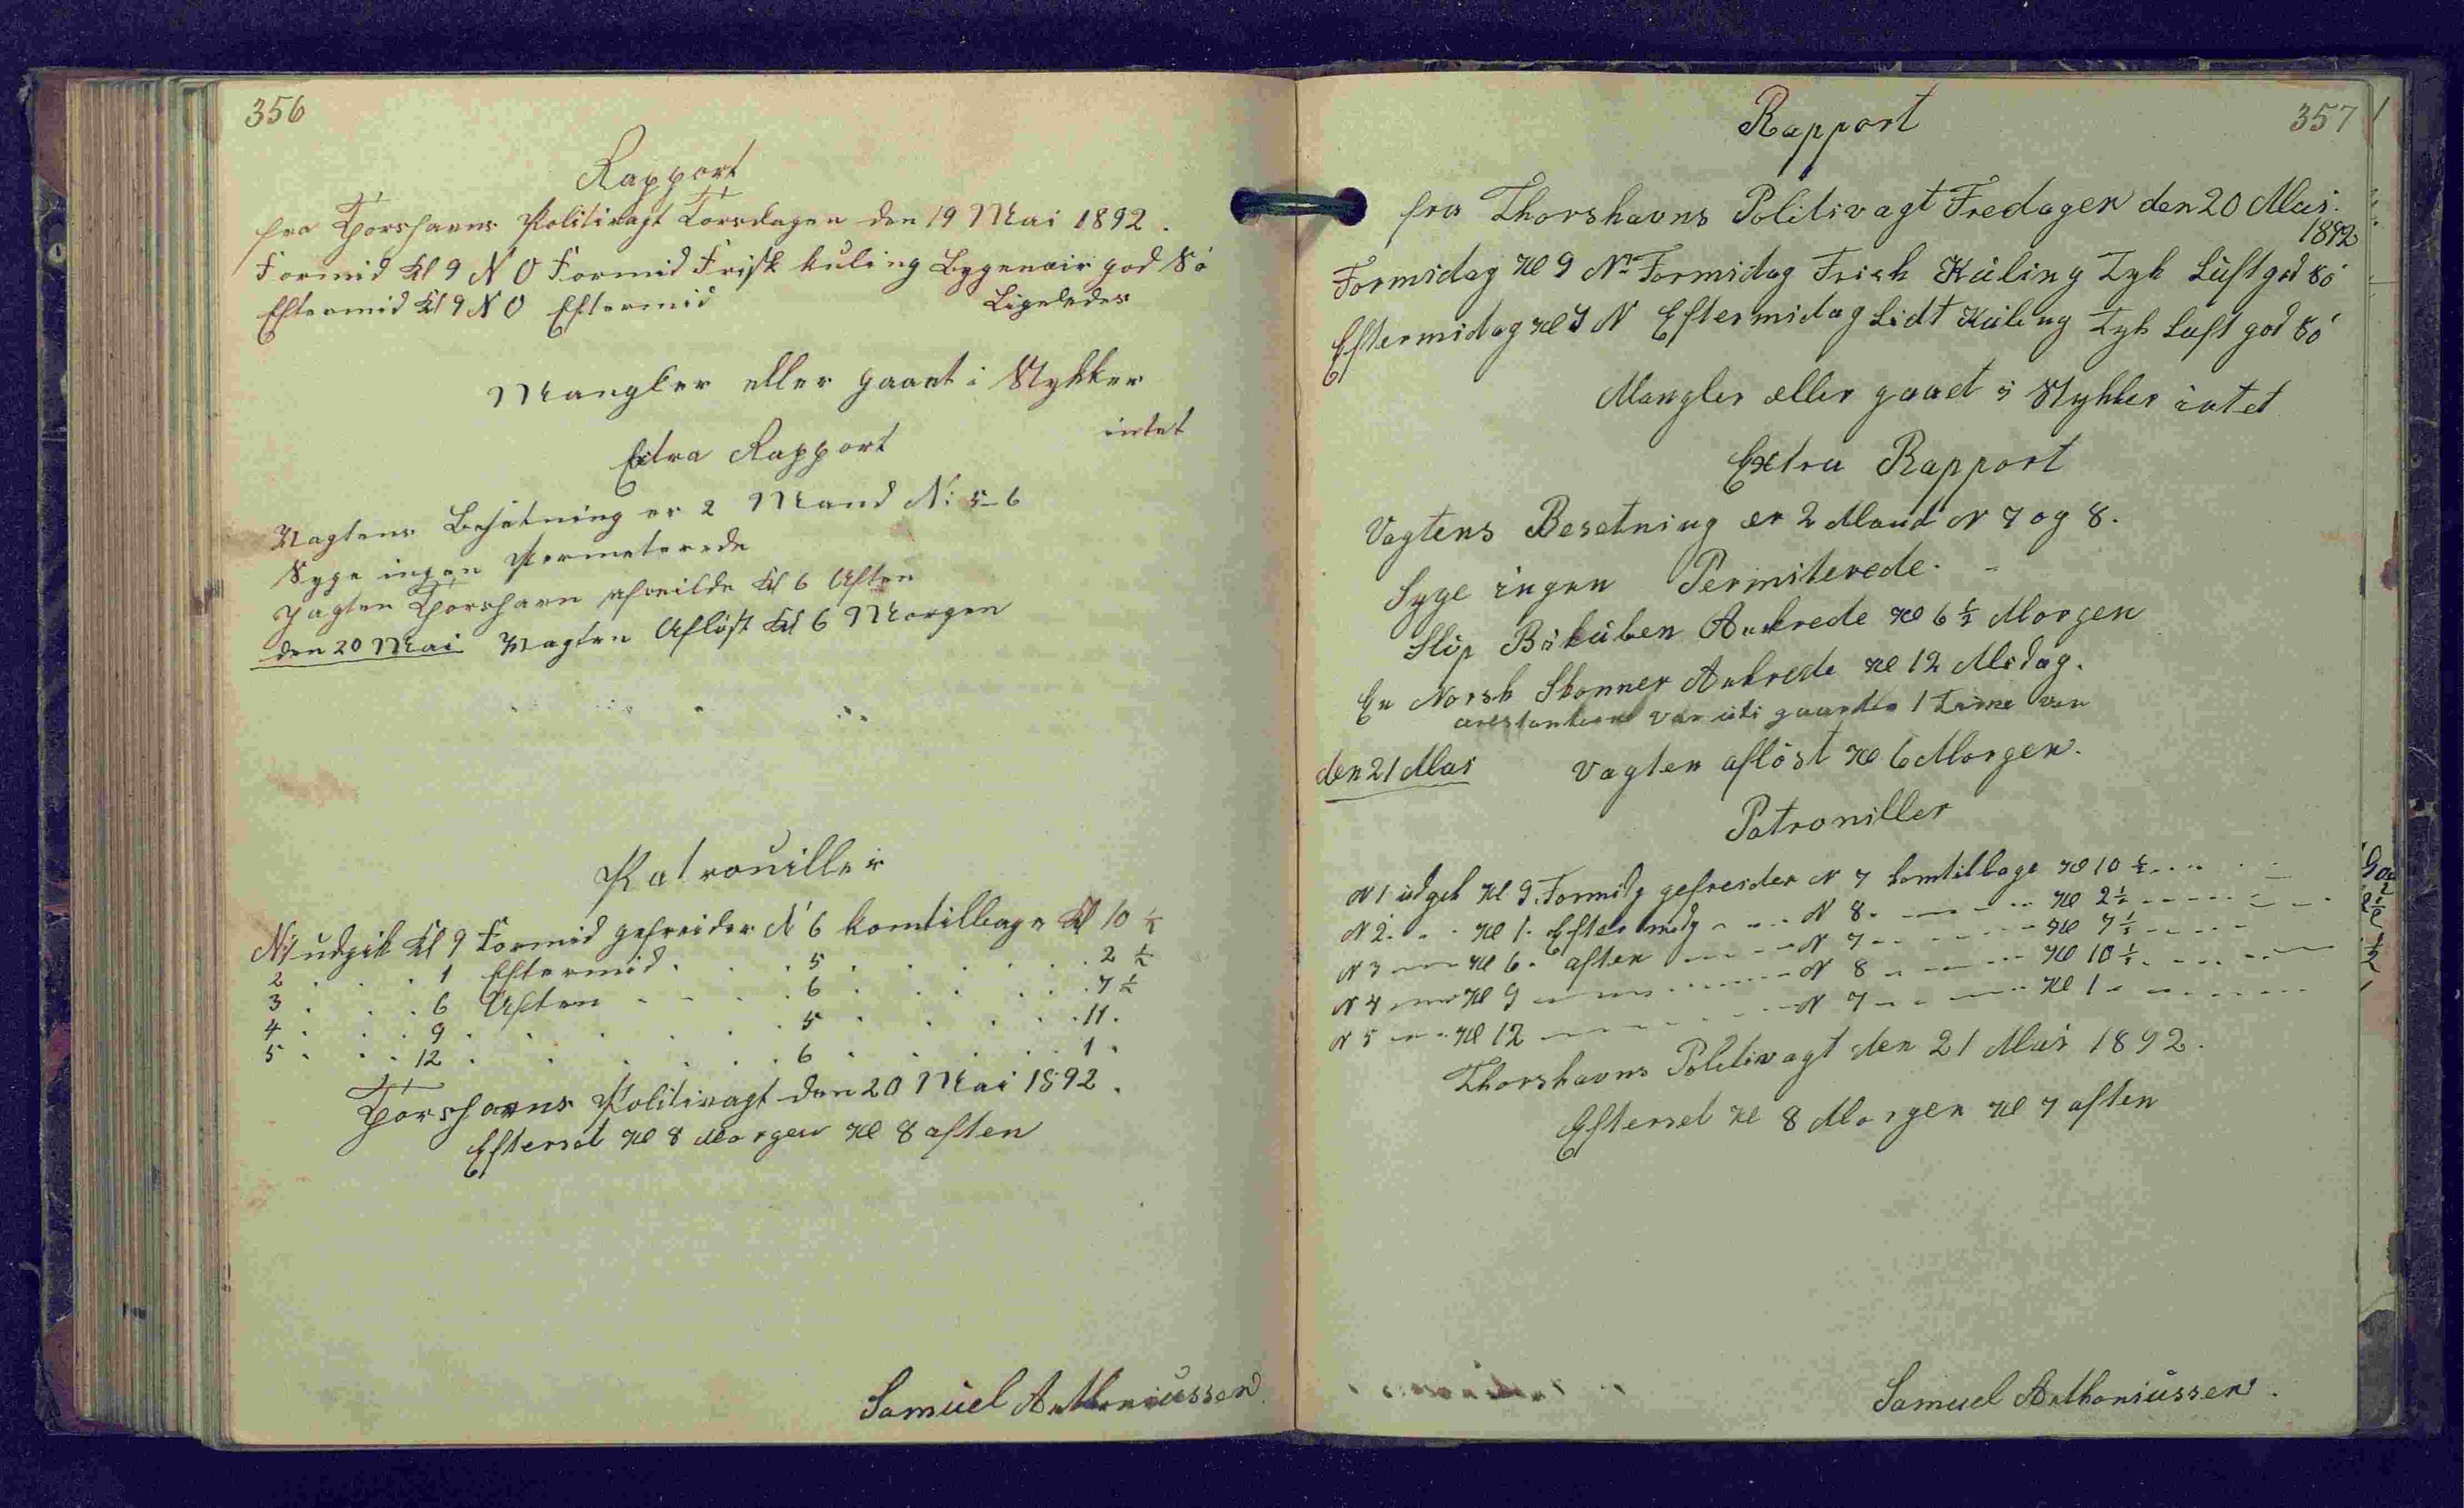 356
Rapport
fra Thorshavns Politivagt Torsdagen den 19 Mai 1892.
Formid Kl 9 N O Formid Frisk kuling Bygeveir god Sö
Eftermid Kl 9 N O Eftermid Ligeledes
Mangler eller gaaet i Stykker
intet
Extra Rapport
Vagtens Besetning er 2 Mand N: 5-6
Syge ingen Permeterede
Jagten Thorshavn afseilde Kl 6 Aften
den 20 Mai Vagten Aflöst Kl 6 Morgen
Patrouiller
N1 udgik Kl 9 Formid gefreider N 6 komtilbage Kl 10 ½
2 . . . 1 Eftermid . . . 5 . . . . . 2 ½
3 . . . 6 Aften . . . . 6 . . . . . 7 ½
4 . . . 9 . . . . . . 5 . . . . . 11.
5 . . . 12 . . . . . . 6 . . . . . 1.
Thorshavns Politivagt den 20 Mai 1892.
Efterset Kl 8 Morgen Kl 8 aften
Samuel Anthoniussen.
357
Rapport
fra Thorshavns Politivagt Fredagen den 20 Mai.
1892
Formidag Kl 9 N Formidag Frisk Kuling Tyk Luft god Sö
Eftermidag Kl 9 N Eftermidag Lidt Kuling Tyk Luft god Sö
Mangler eller gaaet i Stykker intet
Extra Rapport
Vagtens Besetning er 2 Mand N 7 og 8.
Syge ingen Permiterede.
Slup Bikuben Ankrede Kl 6 ½ Morgen
En Norsk Skonner Ankrede Kl 12 Midag.
var uti gaarden 1 Time
den 21 Mai Vagten aflöst Kl 6 Morgen.
Patroniller
N 1 udgik Kl 9. Formidg gefreider N 7 komtilbage Kl 10 ½ . . . .
N 2. . . Kl 1. Eftermidg - . . . N 8. - - - - Kl 2 ½ - - - -
N 3 - - Kl 6. aften - - - N 7 - - - - - Kl 7 ½ - - - -
N 4 - - Kl 9 - - - - - - N 8 - - - - Kl 10 ½ - - - -
N 5 - - Kl 12 - - - - - - N 7 - - - - Kl 1 - - - - -
Thorshavns Politivagt den 21 Mai 1892.
Efterset Kl 8 Morgen Kl 7 aften
Samuel Anthoniussen.